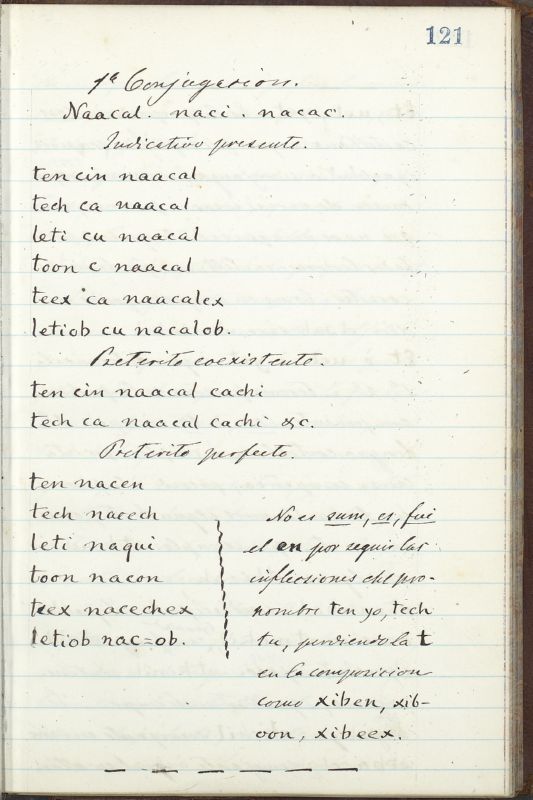 121
1ª Conjugasion.
Naacal. naci. nacac.
Indicativo presente.
ten cin naacal
tech ca naacal
leti cu naacal
toon c naacal
teex ca naacalex
letiob cu nacalob.
Preterito coexistente.
ten cin naacal cachi
tech ca naacal cachi &c.
Preterito perfecto.
ten nacen
tech nacech
leti naqui
toon nacon
teex nacechex
letiob nac=ob.
No es sum, es, fui
el en por seguir las
inflecsiones del pro-
nombre ten yo, tech
tu, perdiendo la t
en la composicion
como xiben, xib-
oon, xibeex.